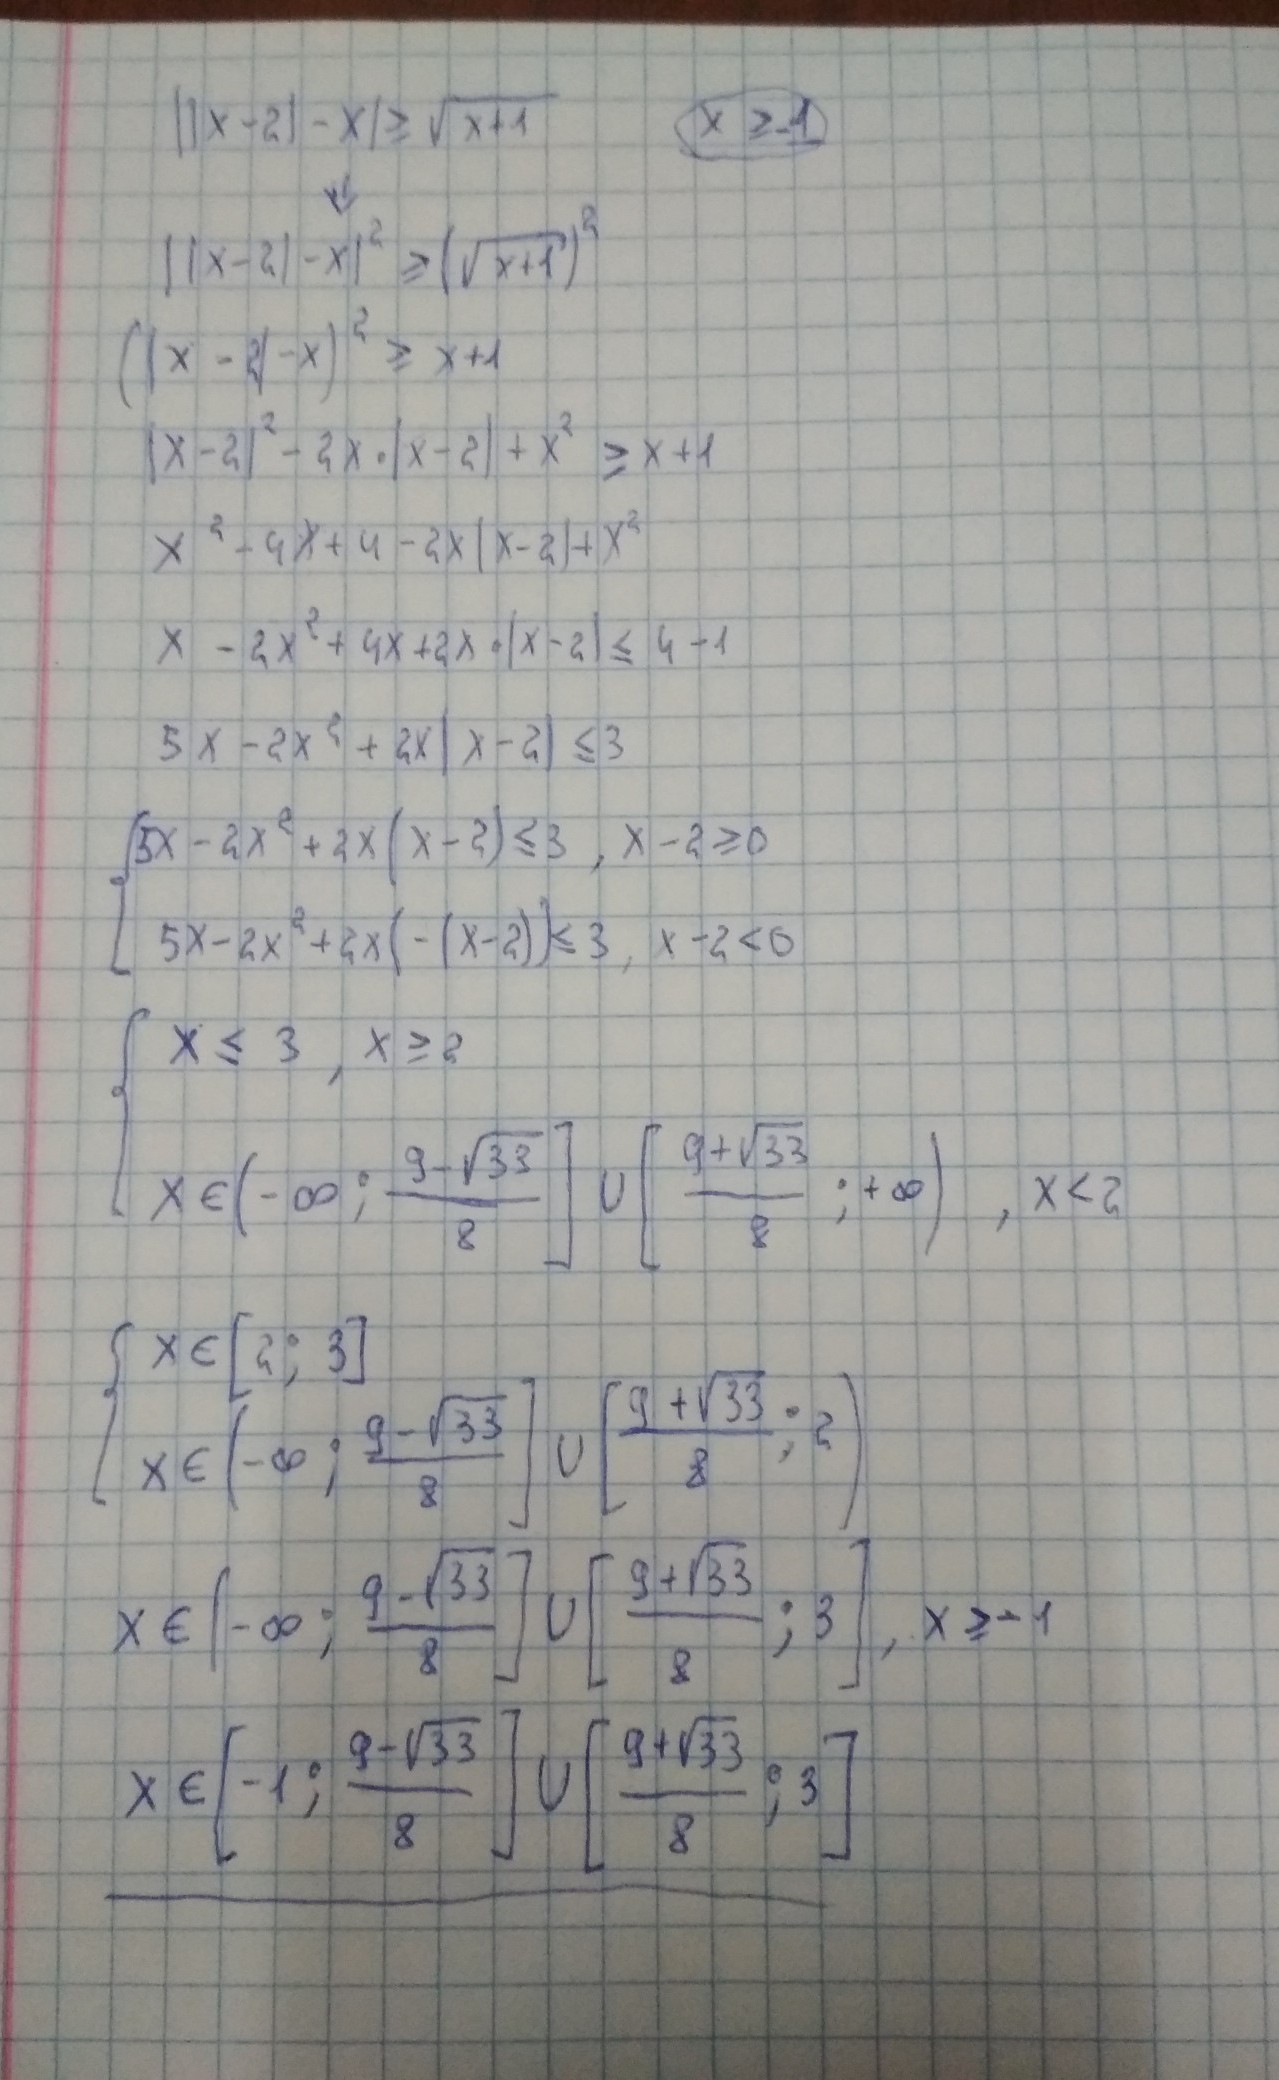 ||x-2|-x| ≥ √(x+1)   x ≥ -1
||x-2|-x|² ≥ (√(x+1))²
(|x-2|-x)² ≥ x+1
|x-2|² - 2x·|x-2| + x² ≥ x+1
x² - 4x + 4 - 2x|x-2| + x²
x - 2x² + 4x + 2x·|x-2| ≤ 4-1
5x - 2x² + 2x|x-2| ≤ 3
{ 5x - 2x² + 2x(x-2) ≤ 3, x-2 ≥ 0
5x - 2x² + 2x(-(x-2)) ≤ 3, x-2 < 0
{ x ≤ 3, x ≥ 2
x ∈ (-∞; (9-√33)/8] ∪ [(9+√33)/8; +∞), x < 2
{ x ∈ [2; 3]
x ∈ (-∞; (9-√33)/8] ∪ [(9+√33)/8; 2)
x ∈ (-∞; (9-√33)/8] ∪ [(9+√33)/8; 3], x ≥ -1
x ∈ [-1; (9-√33)/8] ∪ [(9+√33)/8; 3]